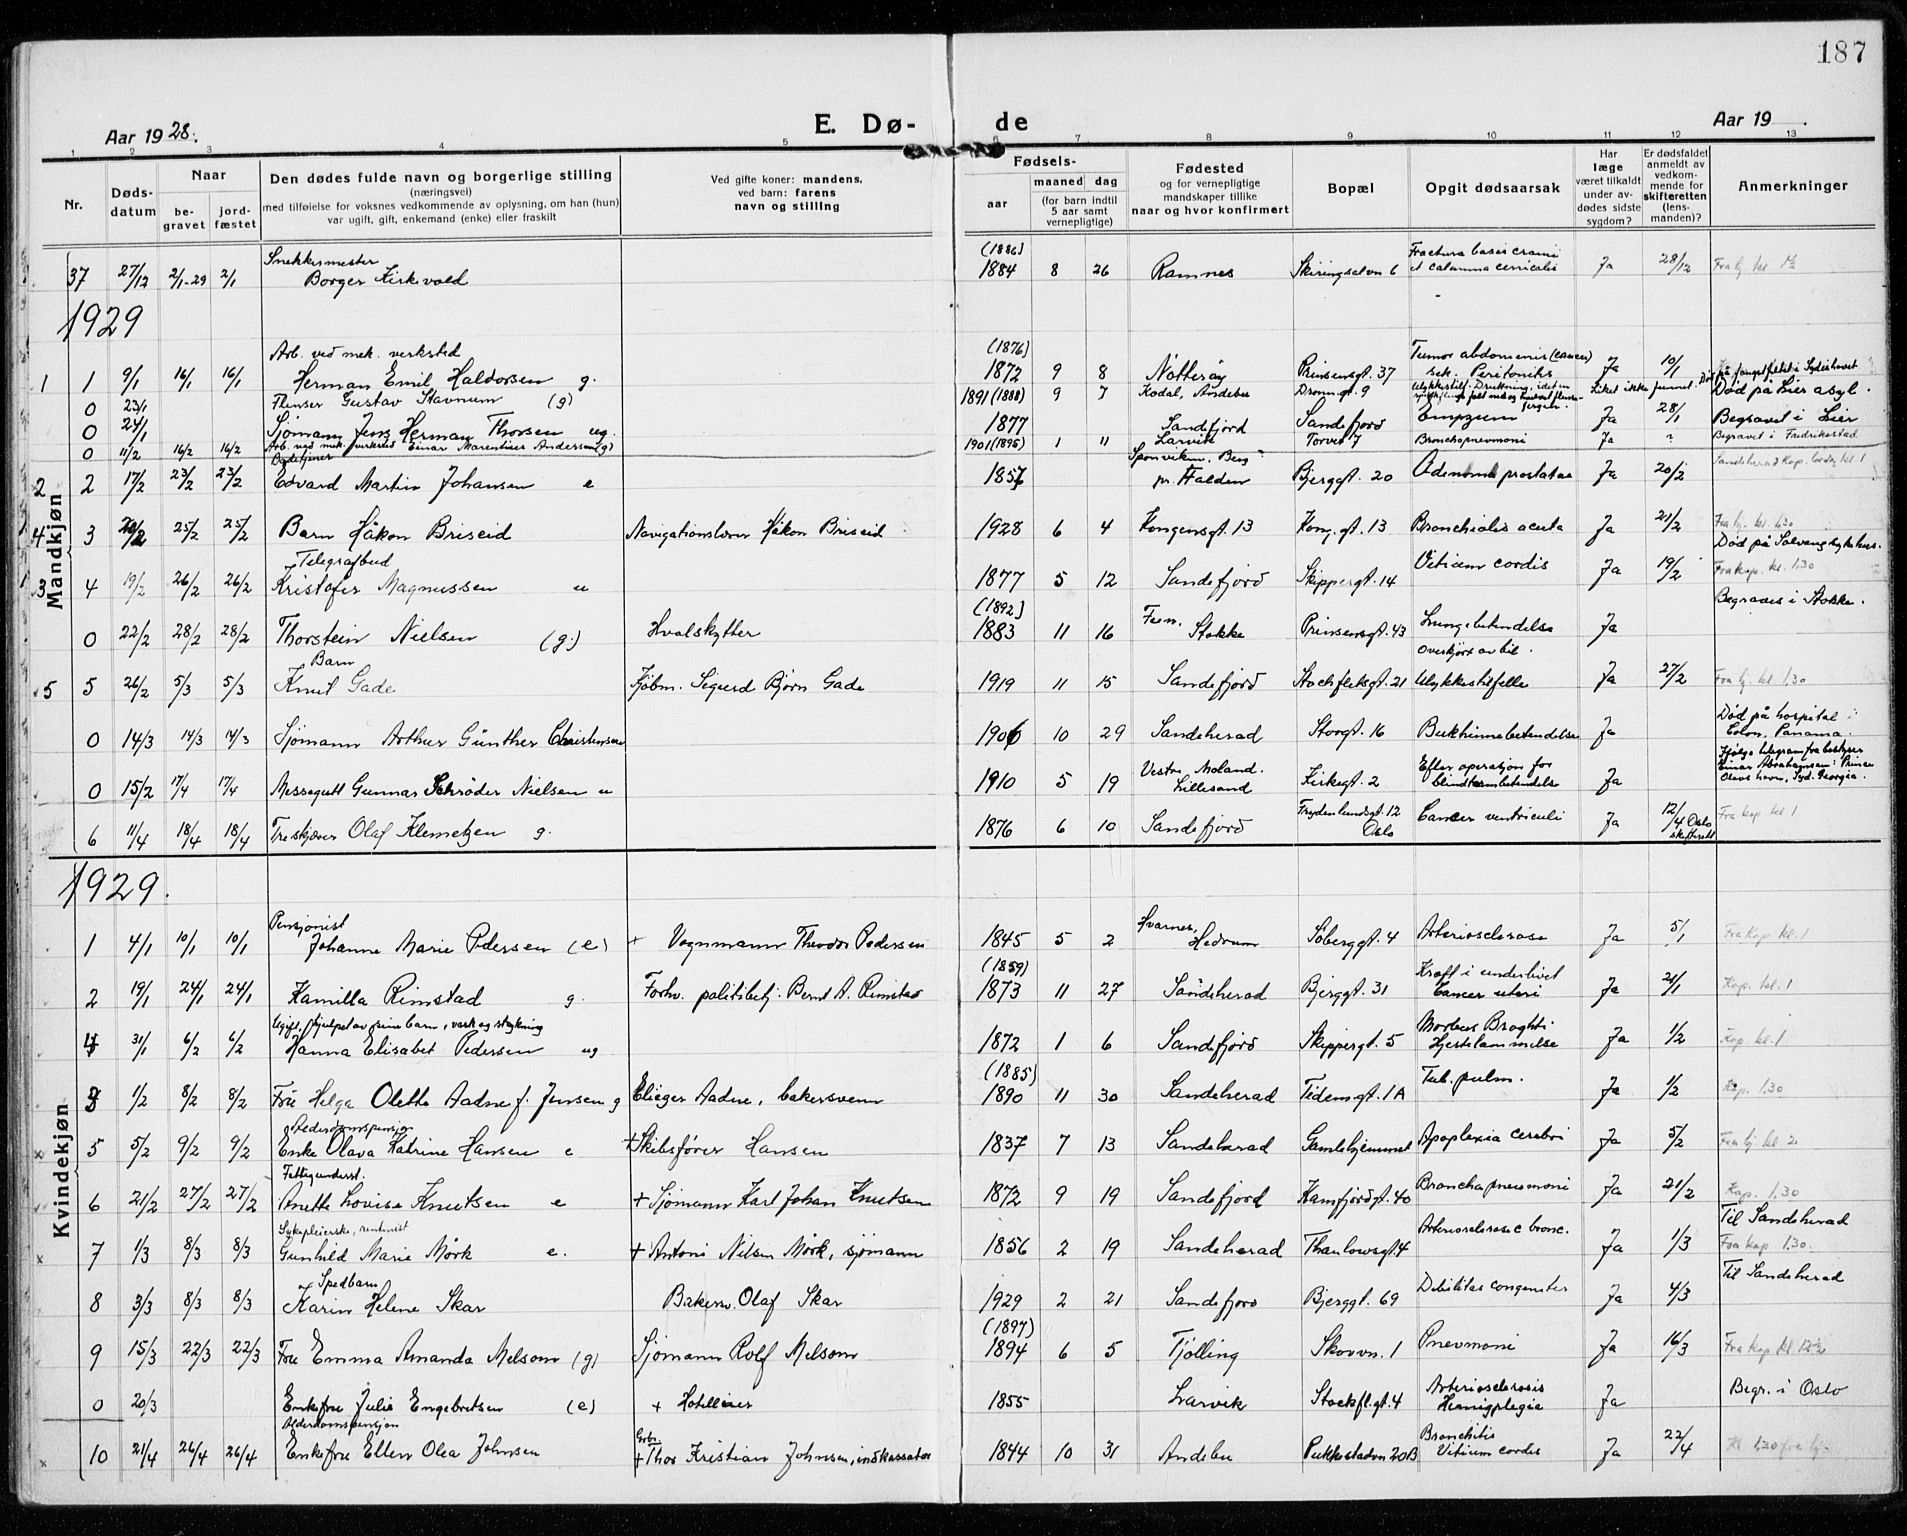 187
Aar 19 28.
E. Dø- de
Aar 19
1 2 3 4 5 6 7 8 9 10 11 12 13
Nr.
Døds-
datum
Naar
be-
gravet
jord-
fæstet
Den dødes fulde navn og borgerlige stilling
(næringsvei)
med tilføielse for voksnes vedkommende av oplysning, om han (hun)
var ugift, gift, enkemand (enke) eller fraskilt
Ved gifte koner: mandens,
ved barn: farens
navn og stilling
Fødsels-
aar
maaned dag
(for barn indtil
5 aar samt
vernepligtige)
Fødested
og for vernepligtige
mandskaper tillike
naar og hvor konfirmert
Bopæl
Opgit dødsaarsak
Har
læge
været tilkaldt
under av-
dødes sidste
sygdom?
Er dødsfaldet
anmeldt av
vedkom-
mende for
skifteretten
(lens-
manden)?
Anmerkninger
Mandkjøn
Snekkermester (1886) Fractura basis cranii
37 27/12 2/1-29 2/1 Borger Kirkevold 1884 8 26 Ramnes Skiringsalvn 6 et columna cervicalis Ja 28/12 Fra kj. kl. 1½
1929
Arb. ved mek. verksted (1876) Tumor abdominis (cancer)
1 1 9/1 16/1 16/1 Herman Emil Haldorsen g. 1872 9 8 Nøtterøy Prinsensgt. 37 sek. Peritonitis Ja 10/1
0 23/1 Flenser Gustav Stavnum (g) 1891 (1888) 9 7 Kodal, Andebu Dronn.gt. 9 Ulykkestilf. Drukning, idet en Liket ikke funnet. Død på fangstfeltet i Sydishavet
0 24/1 Sjømann Jens Herman Thorsen ug. 1877 Sandefjord Sandefjord Empyem Ja 28/1 Død på Lier asyl. Begravet i Lier
0 11/2 16/2 16/2 Arb. ved mek. verksted Einar Marentius Andersen (g) 1901 (1895) 1 11 Larvik Torvet 7 Bronchopnevmoni Ja ? Begravet i Fredrikstad
Sponviken, Berg Sandeherad Kap. lørdag kl 1
2 2 17/2 23/2 23/2 Edvard Martin Johansen e 1857 pr. Halden Bjerggt. 20 Adenoma prostatae Ja 20/2
4 3 20/2 25/2 25/2 Barn Håkon Briseid Navigationslærer Håkon Briseid 1928 6 4 Kongensgt. 13 Kong.gt. 13 Bronchialis acuta Ja 21/2 Fra kj. kl. 1,30
Telegrafbud Død på Solvang sykehus.
3 4 19/2 26/2 26/2 Kristofer Magnussen u 1877 5 12 Sandefjord Skippergt. 14 Vitium cordis Ja 19/2 Fra kap. kl. 1,30
(1892) Fem, Begraves i Stokke.
0 22/2 28/2 28/2 Thorstein Nielsen (g.) Hvalskytter 1883 11 16 Stokke Prinsensgt. 43 Lungebetendelse Ja
Barn Overkjørt av bil.
5 5 26/2 5/3 5/3 Knut Gade Kjøbm. Sigurd Bjørn Gade 1919 11 15 Sandefjord Stochfletsgt. 21 Ulykkestilfelle Ja 27/2 Fra kj. kl 1,30
Død på hospital i
0 14/3 14/3 14/3 Sjømann Arthur Günther Christensen 1906 10 29 Sandeherad Storgt. 16 Bukhinnebetendelse Ja Colon, Panama.
Vestre Moland. Efter operation for Ifølge telegram fra bestyrer Einar Abrahamsen: Prince
0 15/2 17/4 17/4 Messegutt Gunnar Schrøder Nielsen u 1910 5 19 Lillesand Kirkegt. 2 blindtarmbetendelse Ja Olavs havn, Syd. Georgia.
Frydenlundsgt. 12
6 11/4 18/4 18/4 Treskjærer Olaf Klemetzen g. 1876 6 10 Sandefjord Oslo Cancer ventriculi Ja 12/4 Oslo skifterett Fra kap kl 1
1929.
Kvindekjøn
Pensjonist Hvarnes,
1 4/1 10/1 10/1 Johanne Marie Pedersen (e) + Vognmann Theodor Pedersen 1845 5 2 Hedrum Søberggt. 4 Arteriosclerose Ja 5/1 Fra Kap kl. 1
(1859) Kræft i underlivet
2 19/1 24/1 24/1 Kamilla Rimstad g. Forhv. politibetj. Bernt A. Rimstad 1873 11 27 Sandeherad Bjerggt. 31 Cancer uteri Ja 21/1 Kap. kl. 1
Ugift, hjulpet av sine barn, vask og strykning Morbus Brighti
4 31/1 6/2 6/2 Hanna Elisabet Pedersen ug 1872 1 6 Sandefjord Skippergt. 5 Hjertelammelse Ja 1/2 Kap. kl. 1
(1885)
3 1/2 8/2 8/2 Frue Helga Olette Aadne f. Jensen g Elieser Aadne, bakersvenn 1890 11 30 Sandeherad Tidemsgt. 1A Tub. pulm. Ja 1/2 Kap. 1.30
Alderdomspensjon
5 5/2 9/2 9/2 Enke Olava Katrine Hansen e + Skibsfører Hansen 1837 7 13 Sandeherad Gamlehjemmet Apoplexia cerebri Ja 5/2 Fra kj. kl. 2
Fattigunderst.
6 21/2 27/2 27/2 Anette Lovise Knutsen e + Sjømann Karl Johan Knutsen 1872 9 19 Sandefjord Kamfjordgt. 40 Bronchopneumoni Ja 21/2 Kap. 1.30
Sykepleierske, rentenist Til Sandeherad
7 1/3 8/3 8/3 Gunhild Marie Mørk e. + Antoni Nilsen Mørk, sjømann 1856 2 19 Sandeherad Thaulowsgt. 4 Arteriosclerose c bronc. Ja 1/3 Fra kap 1.30.
Spedbarn Til Sandeherad
8 3/3 8/3 8/3 Karin Helene Skar Bakersv. Olaf Skar 1929 2 21 Sandefjord Bjerggt. 69 Debilitas congenita Ja 4/3
(1897)
9 15/3 22/3 22/3 Frue Emma Amanda Melsom (g) Sjømann Rolf Melsom 1894 6 5 Tjølling Skovvn. 1 Pnevmoni Ja 16/3 Fra kap kl 12½
Arteriosclerosis
0 20/3 Enkefrue Julie Engebretsen (e) + Hotelleier 1855 Larvik Stockfl.gt. 4 Hemiplegia Ja Begr. i Oslo
Alderdomspensjon Bronchitis
10 21/4 26/4 26/4 Enkefrue Ellen Olea Johnsen + Thor Kristian Johnsen, inkassator 1844 10 31 Andebu Pukkestadvn 20B Vitium cordis Ja 22/4 Kl 1,30 fra kj.